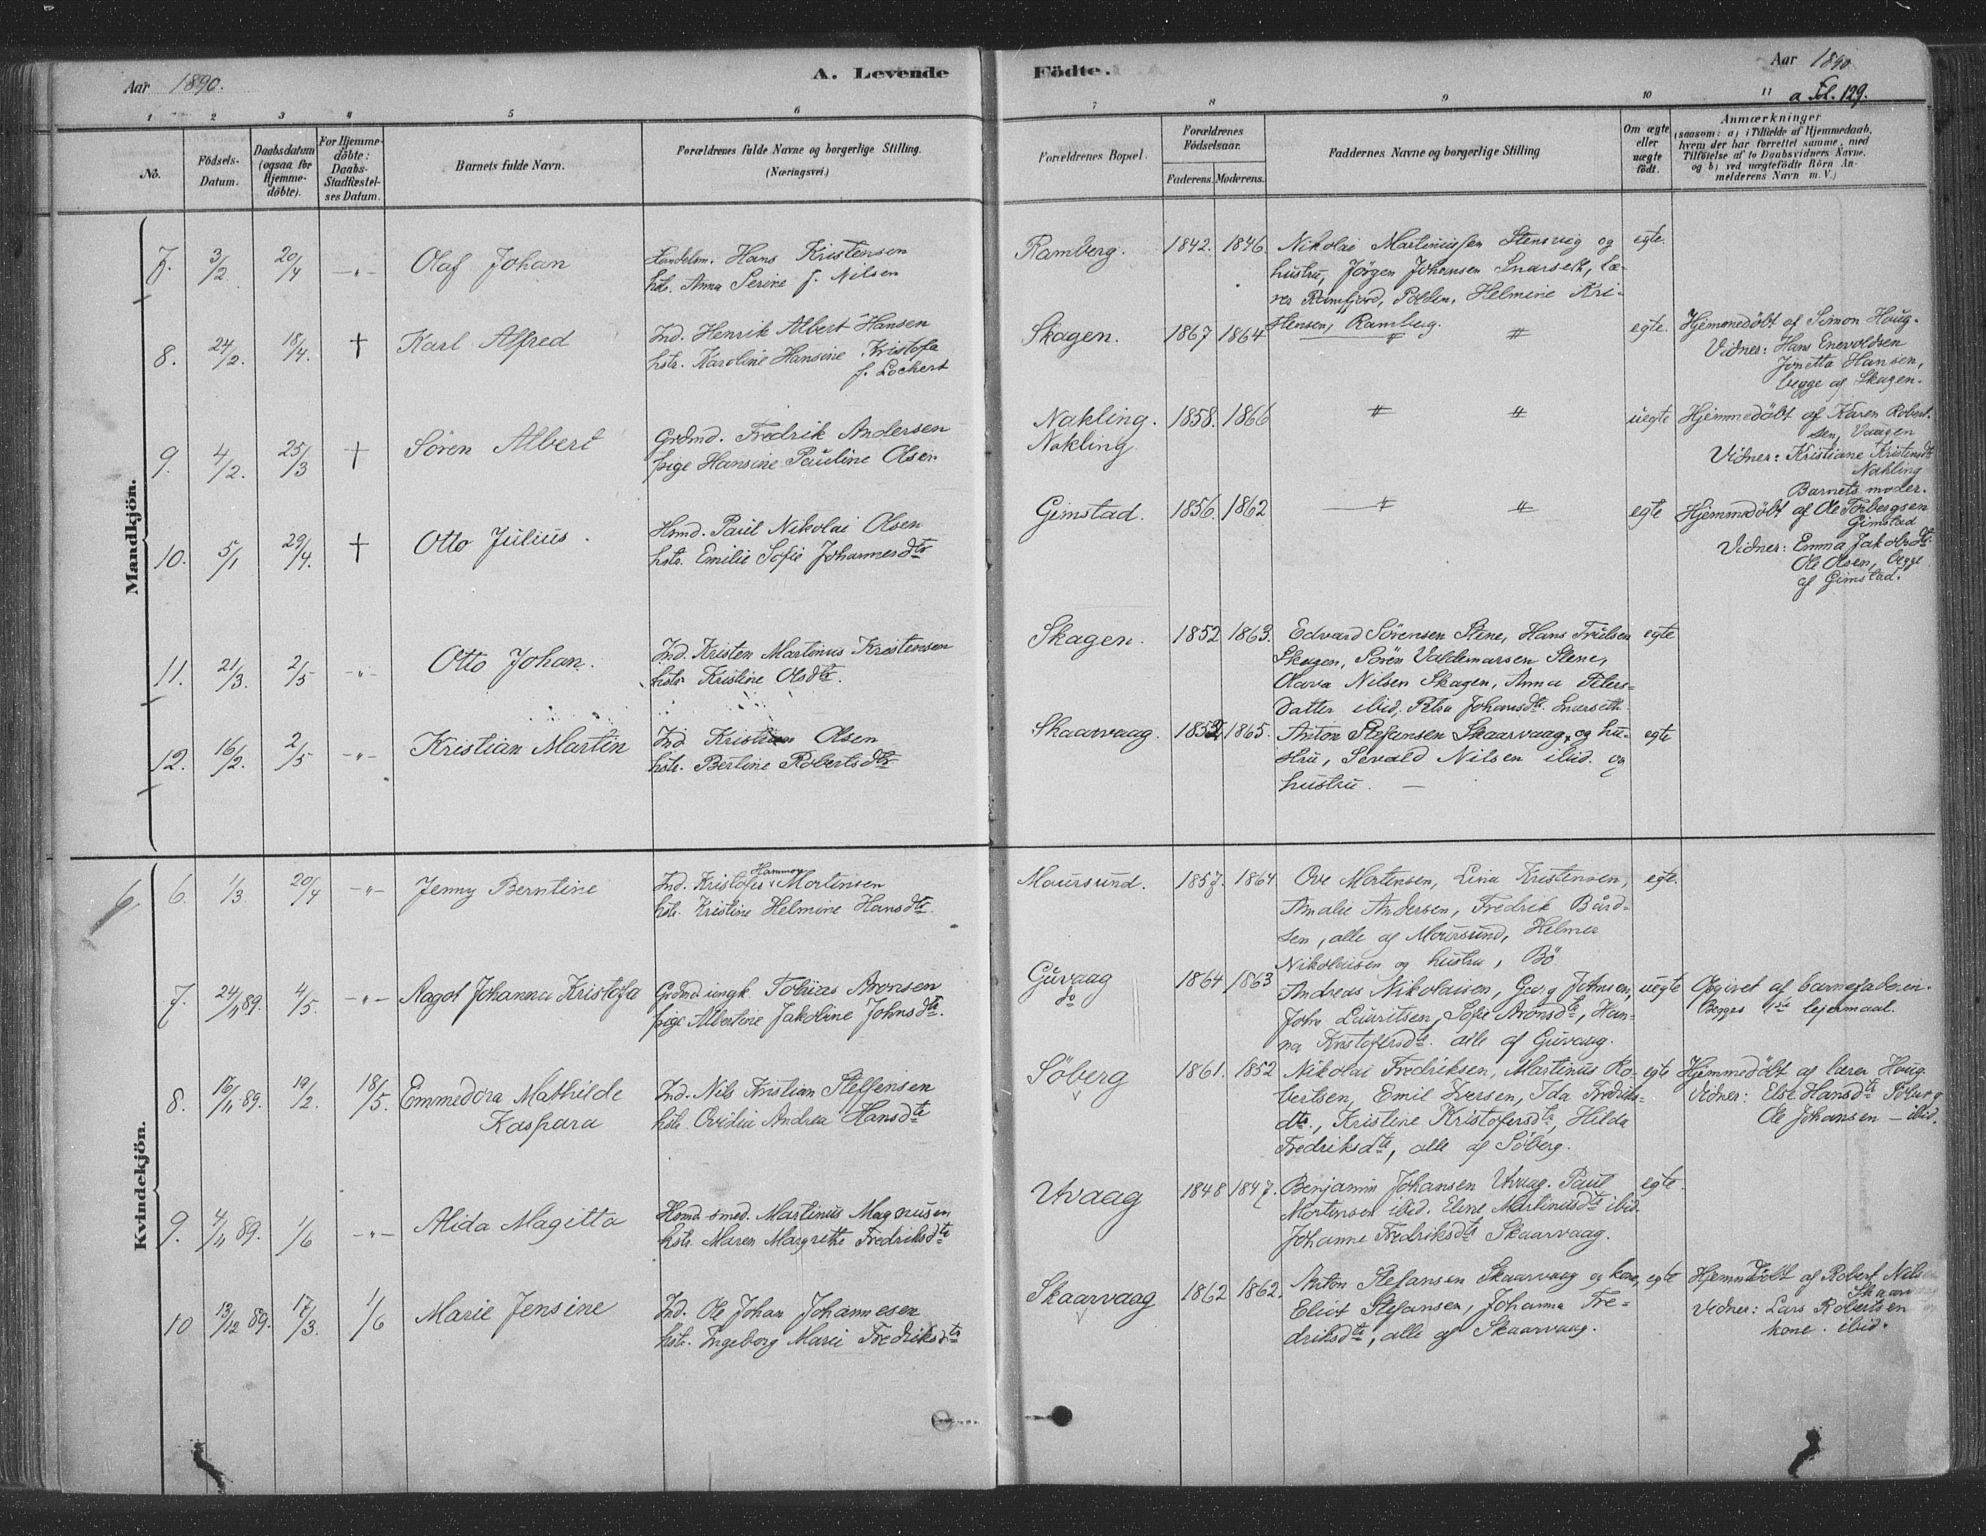 Aar 1890.
A. Levende
Födte.
Aar 1890.
a Fol. 129.
1 2 3 4 5 6 7 8 9 10 11
No.
Födsels-
Datum.
Daabsdatum
(ogsaa for
Hjemme-
döbte).
For Hjemme-
döbte:
Daabs-
Stadfæstel-
ses Datum.
Barnets fulde Navn.
Forældrenes fulde Navne og borgerlige Stilling.
(Næringsvei.)
Forældrenes Bopæl.
Forældrenes
Födselsaar.
Faderens. Moderens.
Faddernes Navne og borgerlige Stilling
Om ægte
eller
uægte
födt.
Anmærkninger
(saasom: a) i Tilfælde af Hjemmedaab,
hvem der har forrettet samme, med
Tilföielse af to Daabsvidners Navne,
og b) ved uægtefödte Börn An-
melderens Navn m. V.)
Mandkjön.
7. 3/2 20/4 -"- Olaf Johan
Landelm. Hans Kristensen
hstr. Anna Serine f. Nilsen
Ramberg. 1842. 1846.
Nikolai Martinussen Stensvig og
hustru, Jörgen Johansen Snarseth, Læ-
rer Ramfjord, Polden, Helmine Kri-
stensen, Ramberg.
egte.
8. 24/2. 18/4. † Karl Alfred
Ind. Henrik Albert Hansen
hstr. Karoline Hansine Kristofa
f. Lockert
Skagen. 1867 1864 " "
egte.
Hjemmedöbt af Simon Houg.
Vidner: Hans Enevoldsen
Jonetta Hansen,
begge af Skagen.
9. 4/2. 25/3 † Sören Albert
Grdmd. Fredrik Andersen
pige Hansine Pauline Olsen
Nakling.
Nakling.
1858. 1866 " "
uegte
Hjemmedöbt af Karen Robert-
sen, Vaagen
Vidner: Kristiane Kristensdtr
Nakling
Barnets moder.
10. 5/1 29/4. † Otto Julius.
Hsmd. Paul Nikolai Olsen
hstr. Emilie Sofie Johannesdtr
Gimstad. 1856. 1862 " "
egte
Hjemmedöbt af Ole Torbergsen
Gimstad
Vidner: Emma Jakobsdtr.
Ole Olsen, begge
af Gimstad.
11. 21/3. 2/5 -"- Otto Johan.
Ind. Kristen Martinus Kristensen
hstr Kristine Olsdtr.
Skagen. 1852 1863.
Edvard Sörensen Stene, Hans Trulsen
Skagen, Sören Valdemarsen Stene,
Olava Nilsen Skagen, Anna Peters-
datter ibid, Petra Johansdtr. Snarseth.
egte
12. 16/2. 2/5 -"- Kristian Martin
Ind Kristian Olsen
hstr. Bertine Robertsdtr
Skaarvaag. 1865.
Anton Steffensen Skaarvaag, og hu-
stru, Sevald Nilsen ibid. og
hustru. —
egte
Kvindekjön.
6
6. 1/3. 20/4 -"- Jenny Berntine
Ind. Kristofer Hammer Mortensen
hstr. Kristine Helmine Hansdtr.
Maursund. 1857. 1864
Ove Mortensen, Lina Kristensen,
Amalie Andersen, Fredrik Bård-
sen, alle af Maursund, Helmer
Nikolaisen og hustru, Bö
egte.
7. 24/11 89. 4/5. -"- Aagot Johanna Kristofa
Grdmd ungk Tobias Aronsen
pige Albertine Jakobine Johnsdtr.
Guvaag
do
1864 1863
Andreas Nikolaisen, Georg Johnsen,
John Lauritsen, Sofie Aronsdtr, Han-
na Kristofersdtr. alle af Guvaag.
uegte
Opgivet af barnefaderen.
Begges 1ste lejermaal.
8. 16/11 89. 19/2. 18/5. Emmedora Mathilde
Kaspara
Ind. Nils Kristian Steffensen
hstr. Ovidia Andrea Hansdtr
Söberg 1861. 1852
Nikolai Fredriksen, Martinus Ro-
bertsen, Emil Iversen, Ida Fredriks-
dtr., Kristine Kristofersdtr, Hilda
Fredriksdtr, alle af Söberg.
egte
Hjemmedöbt af lærer Houg.
Vidner: Else Hansdtr Söberg
Ole Johansen - ibid.
9. 4/11 89. 1/6 -"- Alida Magitta
Hsmd smed. Martinus Magnusen
hstr. Maren Margrethe Fredriksdtr
Utvaag 1848 1847.
Benjamin Johansen Utvaag. Paul
Mortensen ibid. Eline Martinusdtr ibid.
Johanne Fredriksdtr Skaarvaag.
egte.
10 13/12 89. 17/3. 1/6 Marie Jensine
Ind. Ole Johan Johannesen
hstr. Ingeborg Marie Fredriksdtr
Skaarvaag 1862 1862.
Anton Stefansen Skaarvaag og kone,
Eliot Stefansen, Johanna Fre-
driksdtr, alle af Skaarvaag.
egte
Hjemmedöbt af Robert Nilsen
Skaarvaag
Vidner: Lars Robertsen og
kone. ibid.